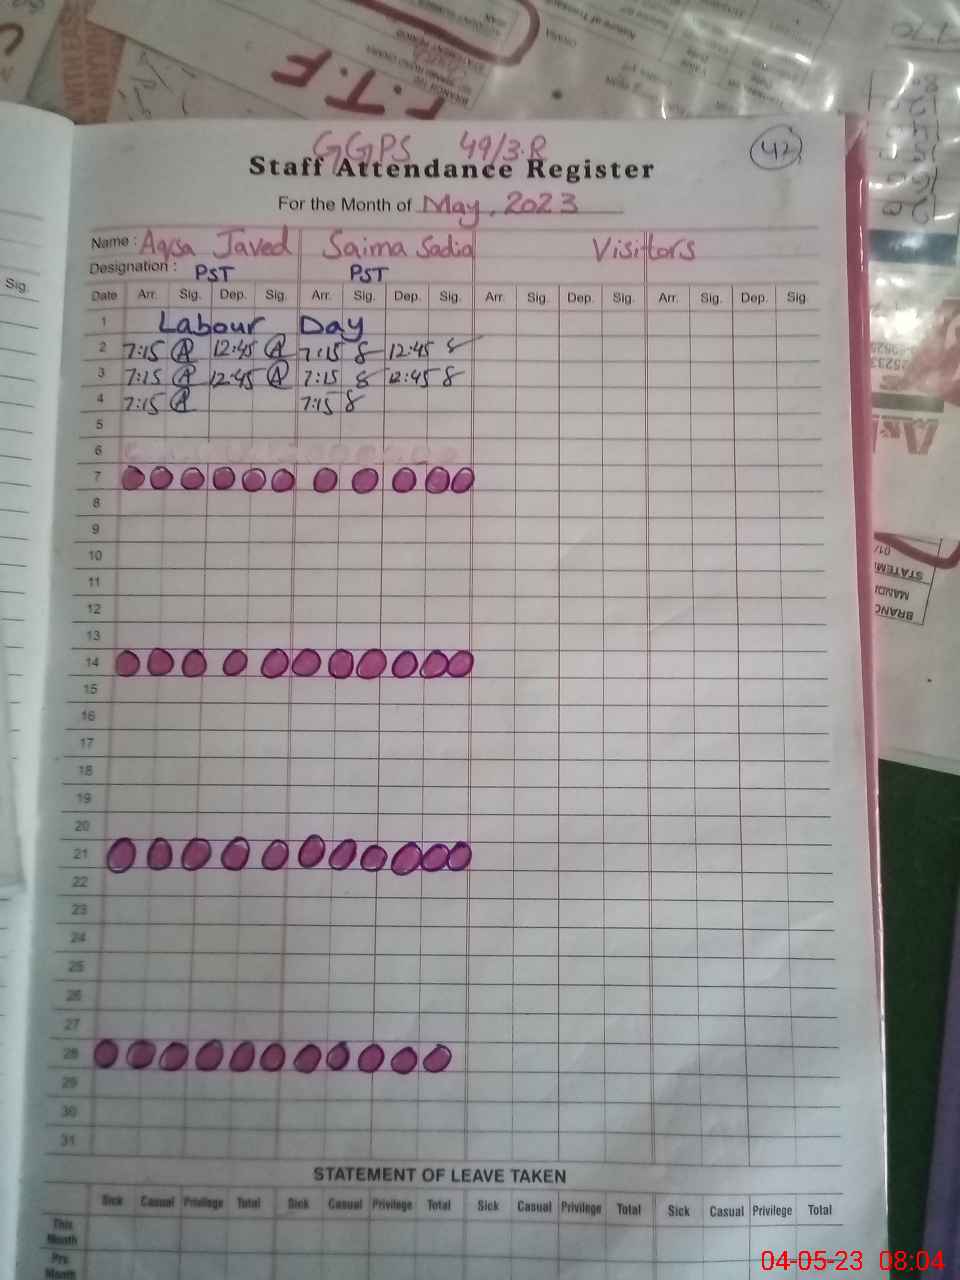 GGPS 49/3.R
42
Staff Attendance Register
For the Month of May, 2023
Name : Aqsa Javed Saima Sadia Visitors
Designation : PST PST
Sig.
Date Arr. Sig. Dep. Sig. Arr. Sig. Dep. Sig. Arr. Sig. Dep. Sig. Arr. Sig. Dep. Sig.
1 Labour Day
2 7:15 A 12:45 A 7:15 8 12:45 8
3 7:15 A 12:45 A 7:15 8 12:45 8
4 7:15 A 7:15 8
5
6
7
8
9
10
11
12
13
14
15
16
17
18
19
20
21
22
23
24
25
26
27
28
29
30
31
STATEMENT OF LEAVE TAKEN
Sick Casual Privilege Total Sick Casual Privilege Total Sick Casual Privilege Total Sick Casual Privilege Total
This Month
Prv Month
T.T.F
STATEM
MANDI
BRANC
04-05-23 08:04